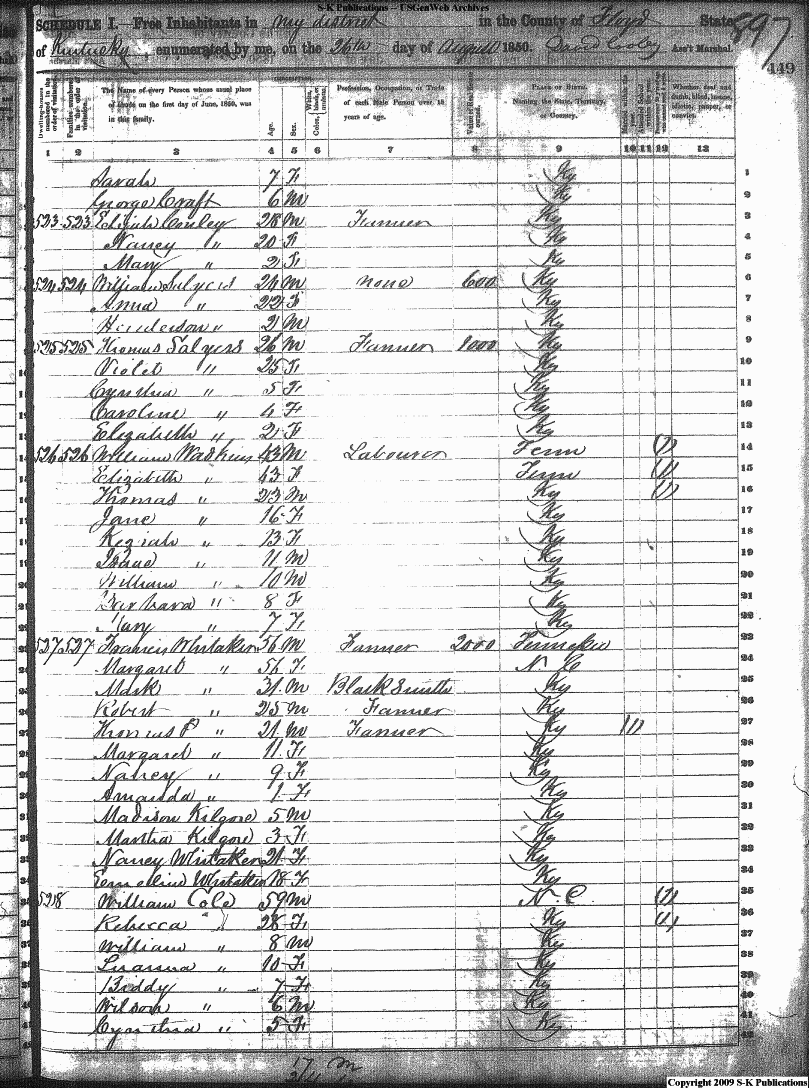 S-K Publications -- USGenWeb Archives
SCHEDULE I.—Free Inhabitants in my district in the County of Floyd State 897
of Kentucky, enumerated by me, on the 26th day of August 1850. David Cooley Ass't Marshal.
449
The Name of every Person whose usual place of abode on the first day of June, 1850, was in this family.
Age.
Sex.
Profession, Occupation, or Trade of each Male Person over 15 years of age.
Place of Birth. Naming the State, Territory, or Country.
1 2 3 4 5 6 7 8 9 10 11 12 13
Sarah 7 F Ky 1
George Craft 6 M Ky 2
523 523 Elijah Conley 28 M Farmer Ky 3
Nancy " 20 F Ky 4
Mary " 2 F Ky 5
524 524 William Salyers 24 M none 600 Ky 6
Anna " 22 F Ky 7
Henderson " 2 M Ky 8
525 525 Thomas Salyers 26 M Farmer 1000 Ky 9
Violet " 25 F Ky 10
Cyntha " 5 F Ky 11
Caroline " 4 F Ky 12
Elizabeth " 2 F Ky 13
526 526 William Watkins 43 M Labourer Tenn (1) 14
Elizabeth " 43 F Tenn (1) 15
Thomas " 23 M Ky (1) 16
Jane " 16 F Ky 17
Keziah " 13 F Ky 18
Isaac " 11 M Ky 19
William " 10 M Ky 20
Barbara " 8 F Ky 21
Mary " 7 F Ky 22
527 527 Francis Whitaker 56 M Farmer 2000 Tennessee 23
Margaret " 56 F N C 24
Mark " 31 M BlackSmith Ky 25
Robert " 25 M Farmer Ky 26
Thomas P " 21 M Farmer Ky (1) 27
Margaret " 11 F Ky 28
Nancy " 9 F Ky 29
Amanda " 1 F Ky 30
Madison Kilgore 5 M Ky 31
Martha Kilgore 3 F Ky 32
Nancy Whitaker 21 F Ky 33
Emeline Whitaker 18 F Ky 34
528 William Cole 59 M N. C (1) 35
Rebecca " 28 F Ky (1) 36
William " 8 M Ky 37
Luanna " 10 F Ky 38
Biddy " 7 F Ky 39
Wilson " 6 M Ky 40
Cyntha " 5 F Ky 42
M
Copyright 2009 S-K Publications